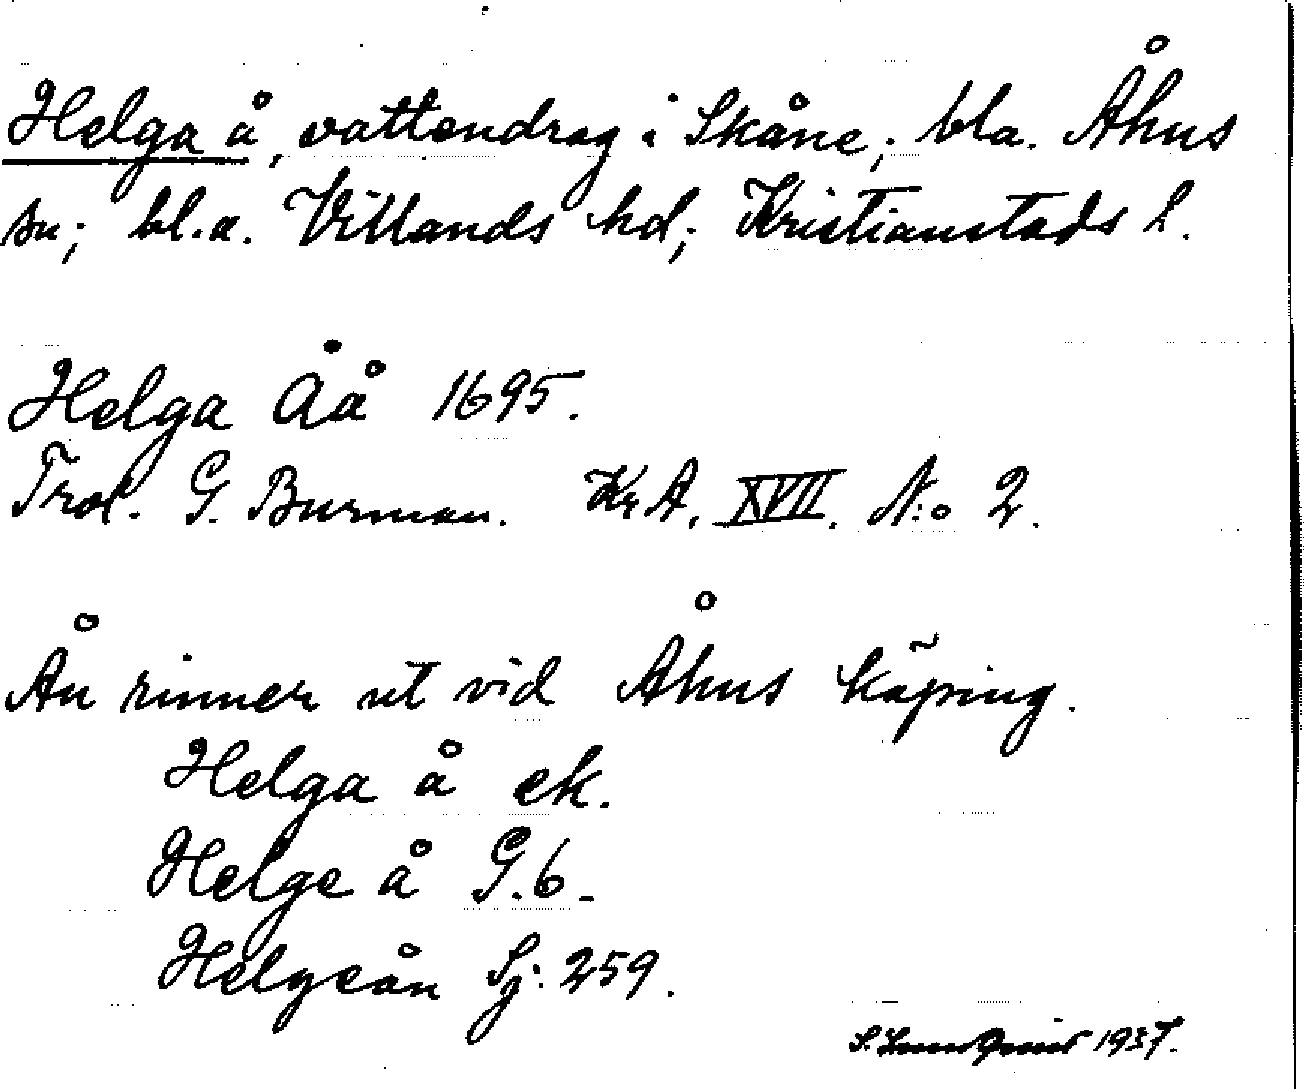 Helga å, vattendrag i Skåne; bl.a. Åhus
sn; bl.a. Villands hd; Kristianstads l.
Helga Åå 1695.
Trol. G. Burman. Kr A. XVII. N:o 2.
Ån rinner ut vid Åhus köping.
Helga å ek.
Helge å G.6.
Helgeån Sj: 259.
S. Lundquist 1937.